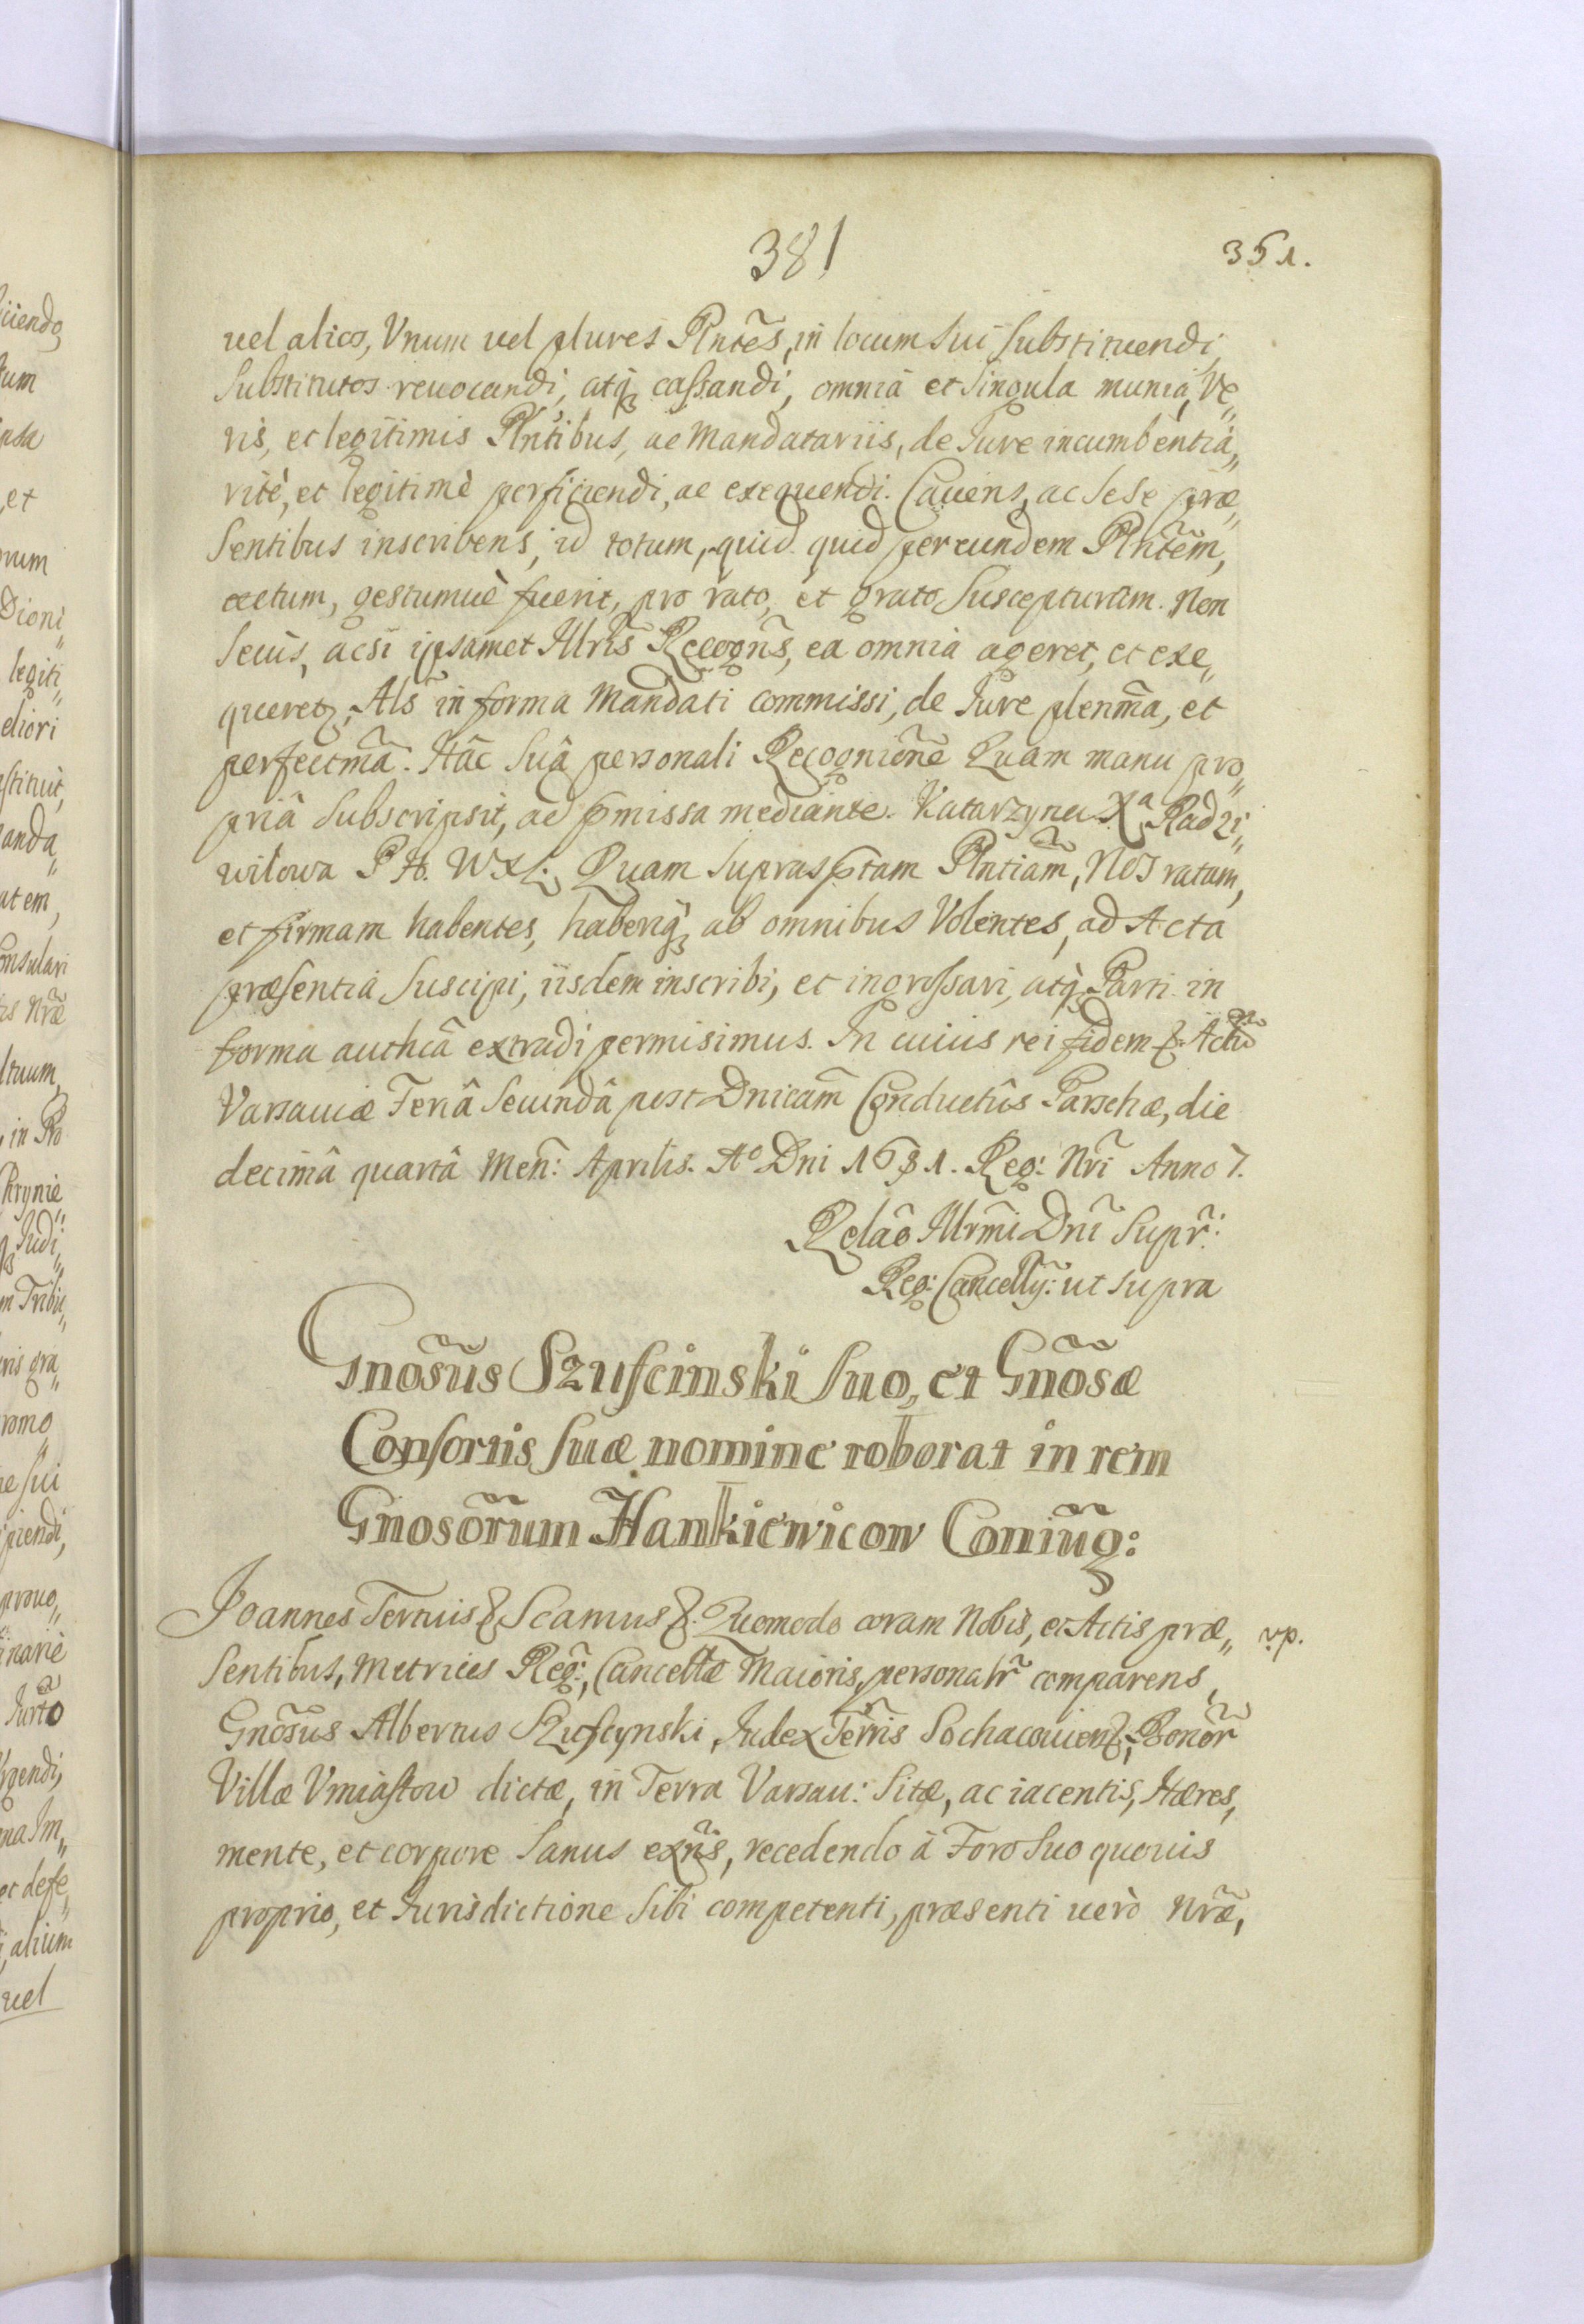 381
351.
uel alios, Vnum uel plures Plntẽs, in locum Sui Substituendi,
Substitutos reuocandi, atq cassandi, omnia et Singula munia, Ve„
ris, et legitimis Plntibus, ac Mandatariis, de Iure incumbentia„
ritè, et legitimè perficiendi, ac exequendi. Cauens, ac Sese præ„
Sentibus inscribens, id totum, quid quid per eundem Plntẽm,
actum, gestumuè fuerit, pro rato, et grato Suscepturam. Non
Secùs, acsi ipsamet Illrĩs Recognñs, ea omnia ageret, et exe„
queretʒ, Als̃ in forma Mandati commissi, de Iure plenm̃a, et
perfectm̃a. Hâc Suâ personali Recogniõne Quam manu pro„
priâ Subscripsit, ad p̃missa mediante. Katarzyna Xa Radzi„
wilowa P H. WXL. Quam Supraspt̃am Plntiam̃, Nos ratam,
et firmam habentes, haberiq ab omnibus Volentes, ad Acta
præsentia Suscipi, iisdem inscribi, et ingrossari, atq Parti in
forma authcã extradi permisimus. In cuius rei fidem &. Actũ
Varsauiæ Feriâ Secundâ post Dnicam̃ Conductûs Paschæ, die
decimâ quartâ Men̄: Aprilis. Ao Dni 1681. Reg: Nrĩ Anno 7.
Relaõ Illrm̃i Dnĩ Supr̃:
Reg: Cancellrỹ: ut Supra
Gnosũs Szuscinski Suo, et Gñosæ
Consortis Suæ nomine roborat in rem
Gnosorũm Hankiewicow Coniũg:
Joannes Tertius & Scamus &. Quomodo coram Nobis, et Actis præ„
v.p.
Sentibus, Metrices Reg̃:, Cancellæ Maioris, personalr̃ comparens,
Gnosũs Albertus Szuscynski, Iudex Terr̃is Sochacouien&, Bonor̃
Villæ Vmiastow dictæ, in Terra Varsau: Sitæ, ac iacentis, Hæres,
mente, et corpore Sanus exñs, recedendo à Foro Suo quouis
proprio, et Iurisdictione Sibi competenti, præsenti uerò Nræ̃,